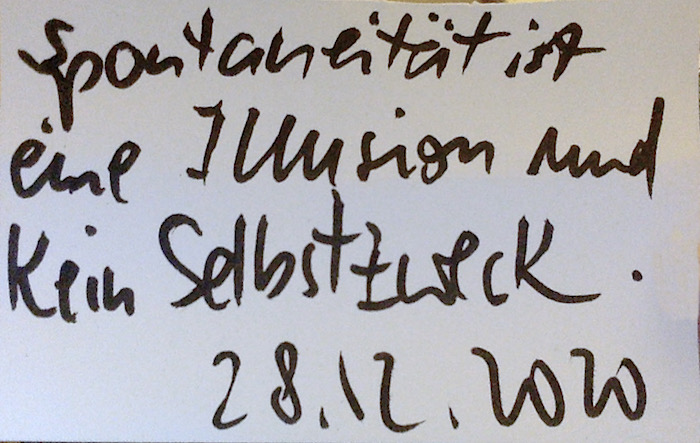 Spontaneität ist
eine Illusion und
kein Selbstzweck.
28.12.2020